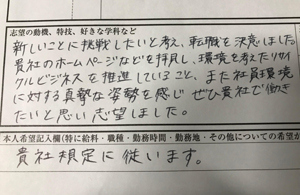 志望の動機、特技、好きな学科など
新しいことに挑戦したいと考え、転職を決意しました。
貴社のホームページなどを拝見し、環境を考えたリサイ
クルビジネスを推進していること、また社員環境
に対する真摯な姿勢を感じぜひ貴社で働き
たいと思い志望しました。
本人希望記入欄(特に給料・職種・勤務時間・勤務地・その他についての希望が
貴社規定に従います。